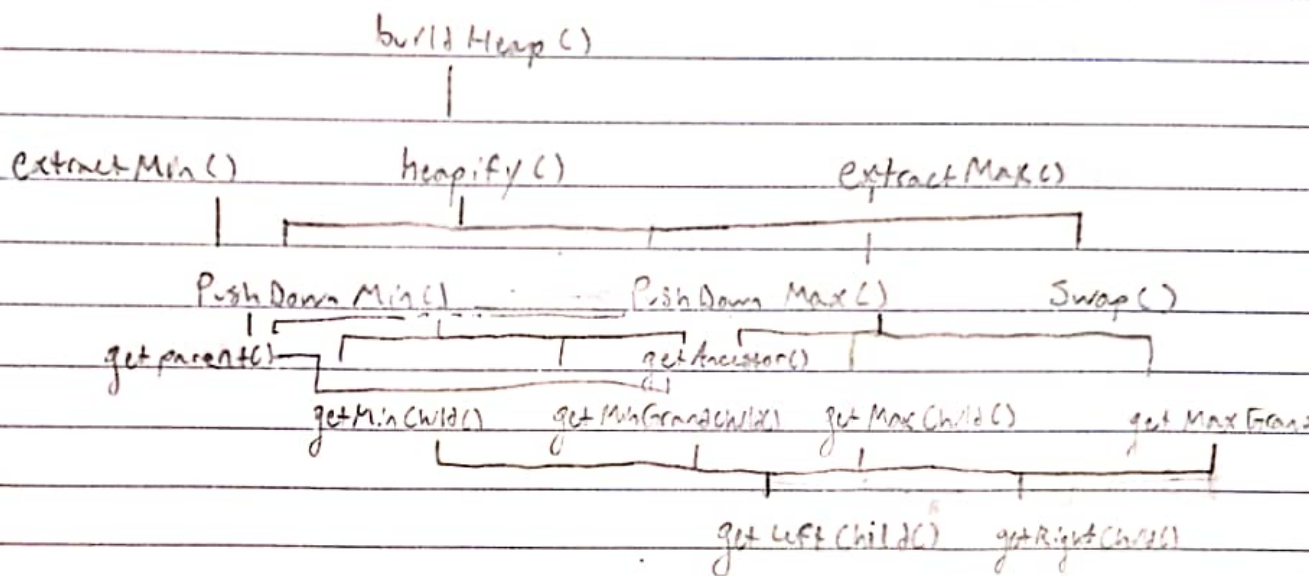 buildHeap()
extractMin() heapify() extractMax()
PushDownMin() PushDownMax() Swap()
getparent() getAncestor()
getMinChild() getMinGrandchild() getMaxChild() getMaxGrand
getLeftChild() getRightChild()